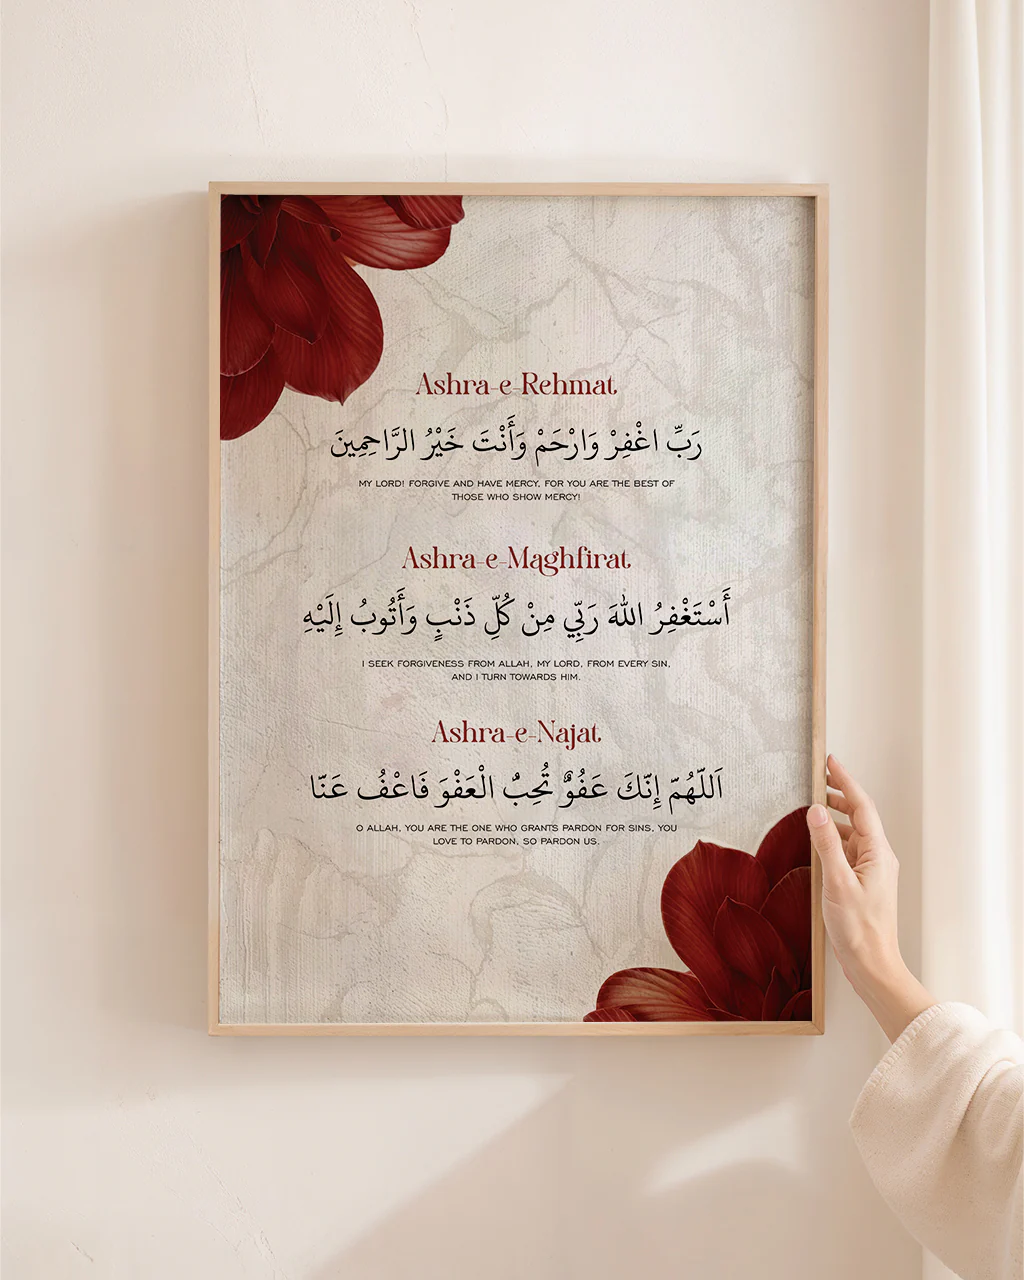 Ashra-e-Rehmat
رَبِّ اغْفِرْ وَارْحَمْ وَأَنْتَ خَيْرُ الرَّاحِمِينَ
MY LORD! FORGIVE AND HAVE MERCY, FOR YOU ARE THE BEST OF
THOSE WHO SHOW MERCY!
Ashra-e-Maghfirat
أَسْتَغْفِرُ اللهَ رَبِّي مِنْ كُلِّ ذَنْبٍ وَأَتُوبُ إِلَيْهِ
I SEEK FORGIVENESS FROM ALLAH, MY LORD, FROM EVERY SIN,
AND I TURN TOWARDS HIM.
Ashra-e-Najat
اَللّهُمّ إِنّكَ عَفُوٌّ تُحِبُّ الْعَفْوَ فَاعْفُ عَنّا
O ALLAH, YOU ARE THE ONE WHO GRANTS PARDON FOR SINS, YOU
LOVE TO PARDON, SO PARDON US.